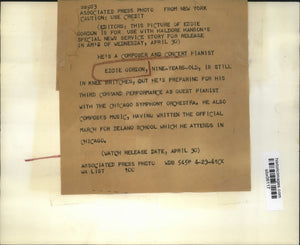 ASSOCIATED PRESS PHOTO FROM NEW YORK
CAUTION: USE CREDIT
(EDITORS: THIS PICTURE OF EDDIE
GORDON IS FOR USE WITH HALDORE HANSON'S
SPECIAL NEWS SERVICE STORY FOR RELEASE
IN AM'S OF WEDNESDAY, APRIL 30)
HE'S A COMPOSER AND CONCERT PIANIST
EDDIE GORDON, NINE-YEARS-OLD, IS STILL
IN KNEE BRITCHES, BUT HE'S PREPARING FOR HIS
THIRD COMMAND PERFORMANCE AS GUEST PIANIST
WITH THE CHICAGO SYMPHONY ORCHESTRA. HE ALSO
COMPOSES MUSIC, HAVING WRITTEN THE OFFICIAL
MARCH FOR DELANO SCHOOL WHICH HE ATTENDS IN
CHICAGO.
(WATCH RELEASE DATE, APRIL 30)
ASSOCIATED PRESS PHOTO
WX LIST